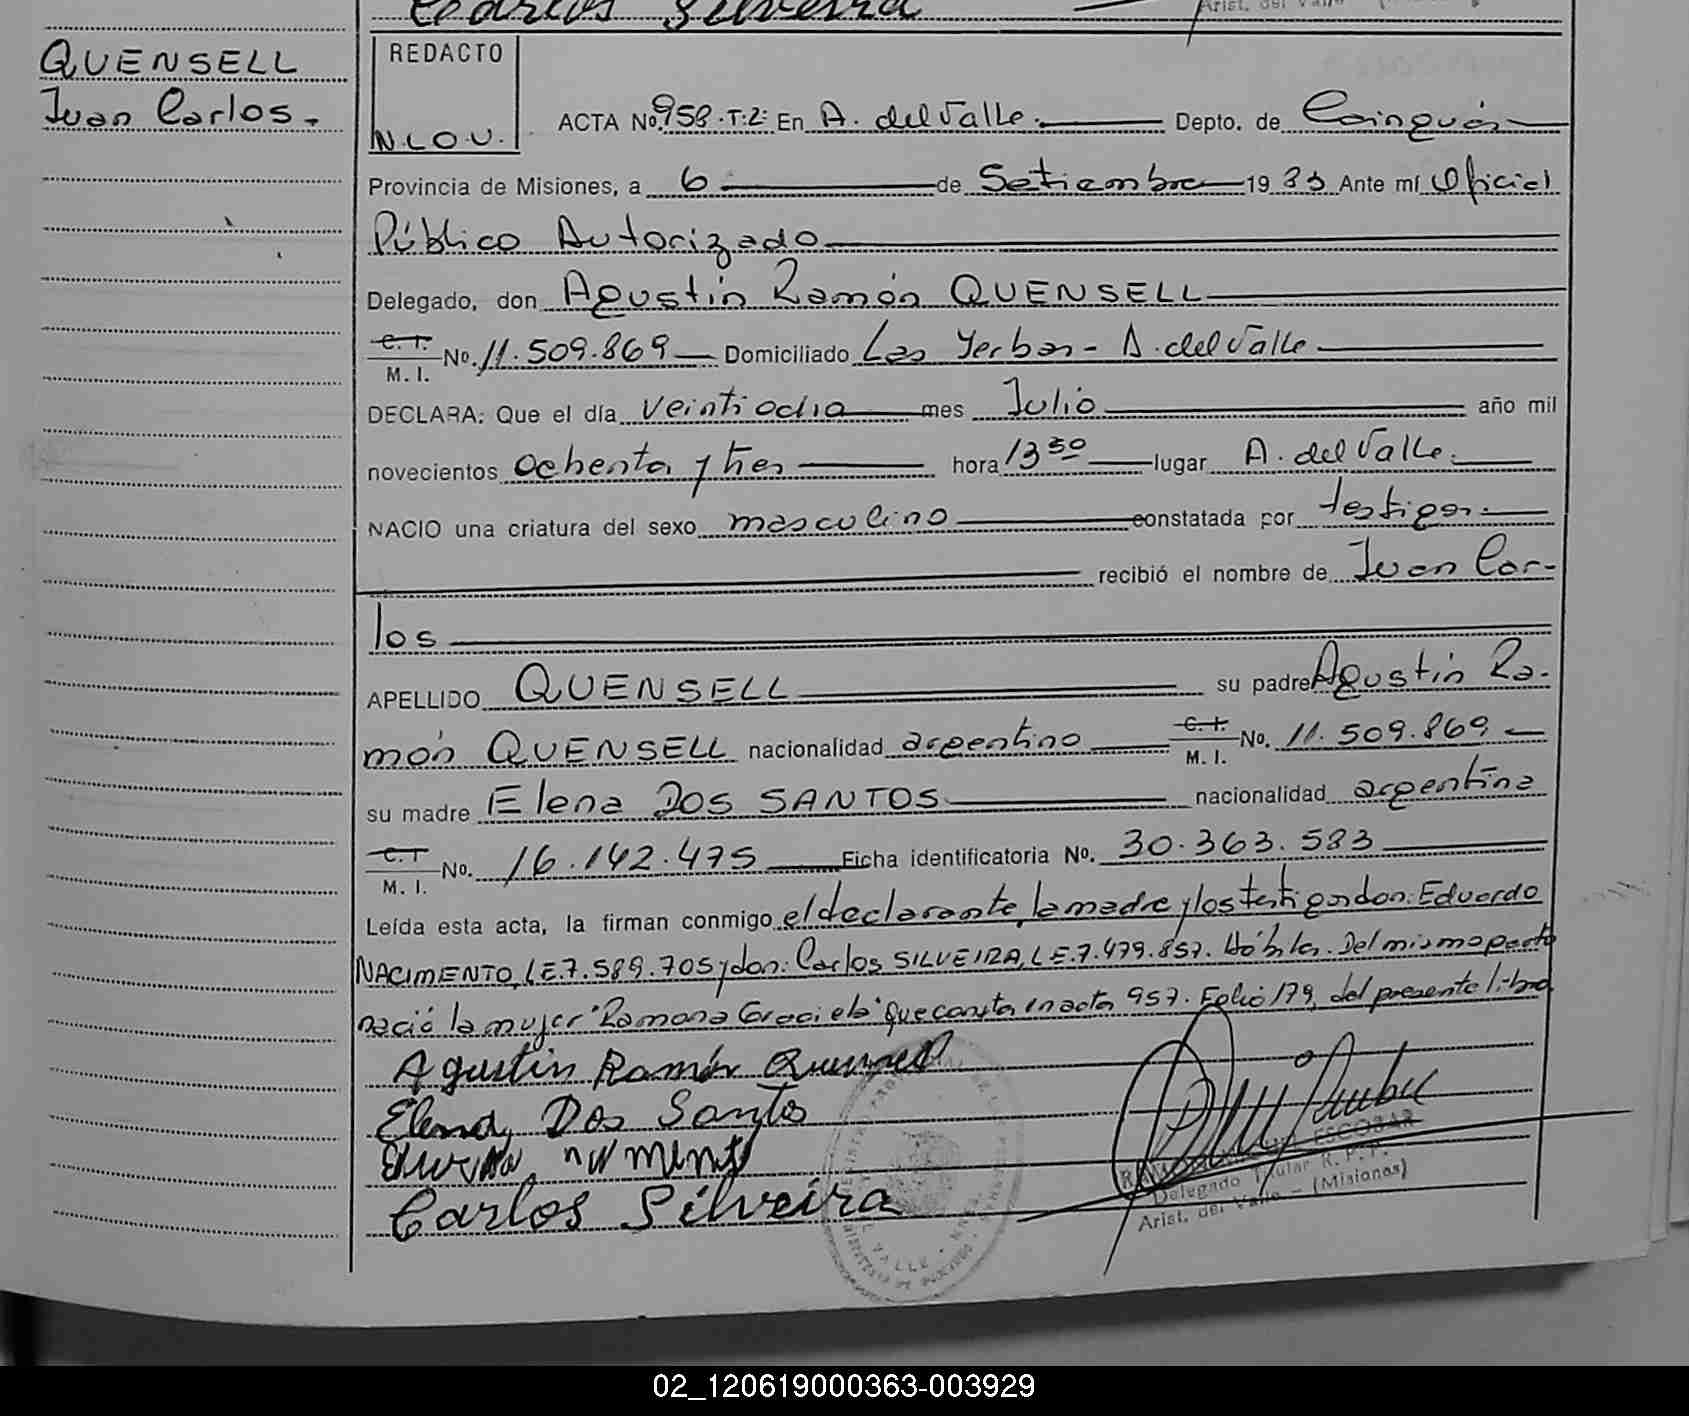 Carlos Silveira
Arist. del Valle
QUENSELL
Juan Carlos.-
REDACTO
N.L.O.U.
ACTA No. 958.T:2: En A. del Valle. Depto. de Cainguás
Provincia de Misiones, a 6 de Setiembre 1983 Ante mí Oficial
Público Autorizado
Delegado, don Agustín Ramón QUENSELL
C. I.
M. I. No. 11.509.869 Domiciliado Las Yerbas - A. del Valle
DECLARA: Que el día veintiocho mes Julio año mil
novecientos ochenta y tres hora 13 30 lugar A. del Valle.
NACIO una criatura del sexo masculino constatada por testigos
recibió el nombre de Juan Car-
los
APELLIDO QUENSELL su padre Agustín Ra-
món QUENSELL nacionalidad argentino C. I. M. I. No. 11.509.869
su madre Elena DOS SANTOS nacionalidad argentina
C. I M. I. No. 16.142.475 Ficha identificatoria No. 30.363.583
Leída esta acta, la firman conmigo el declarante, la madre y los testigos don: Eduardo
NACIMENTO, LE.7.589.705 y don: Carlos SILVEIRA, LE.7.479.857. Hábiles. Del mismo parto
nació la mujer "Ramona Graciela" que consta en acta 957. Folio 179, del presente libro
Agustín Ramón Quensell
Elena Dos Santos
Carlos Silveira
ESCOBAR
Delegado Titular R. P. P.
Arist. del Valle - (Misiones)
02_120619000363-003929